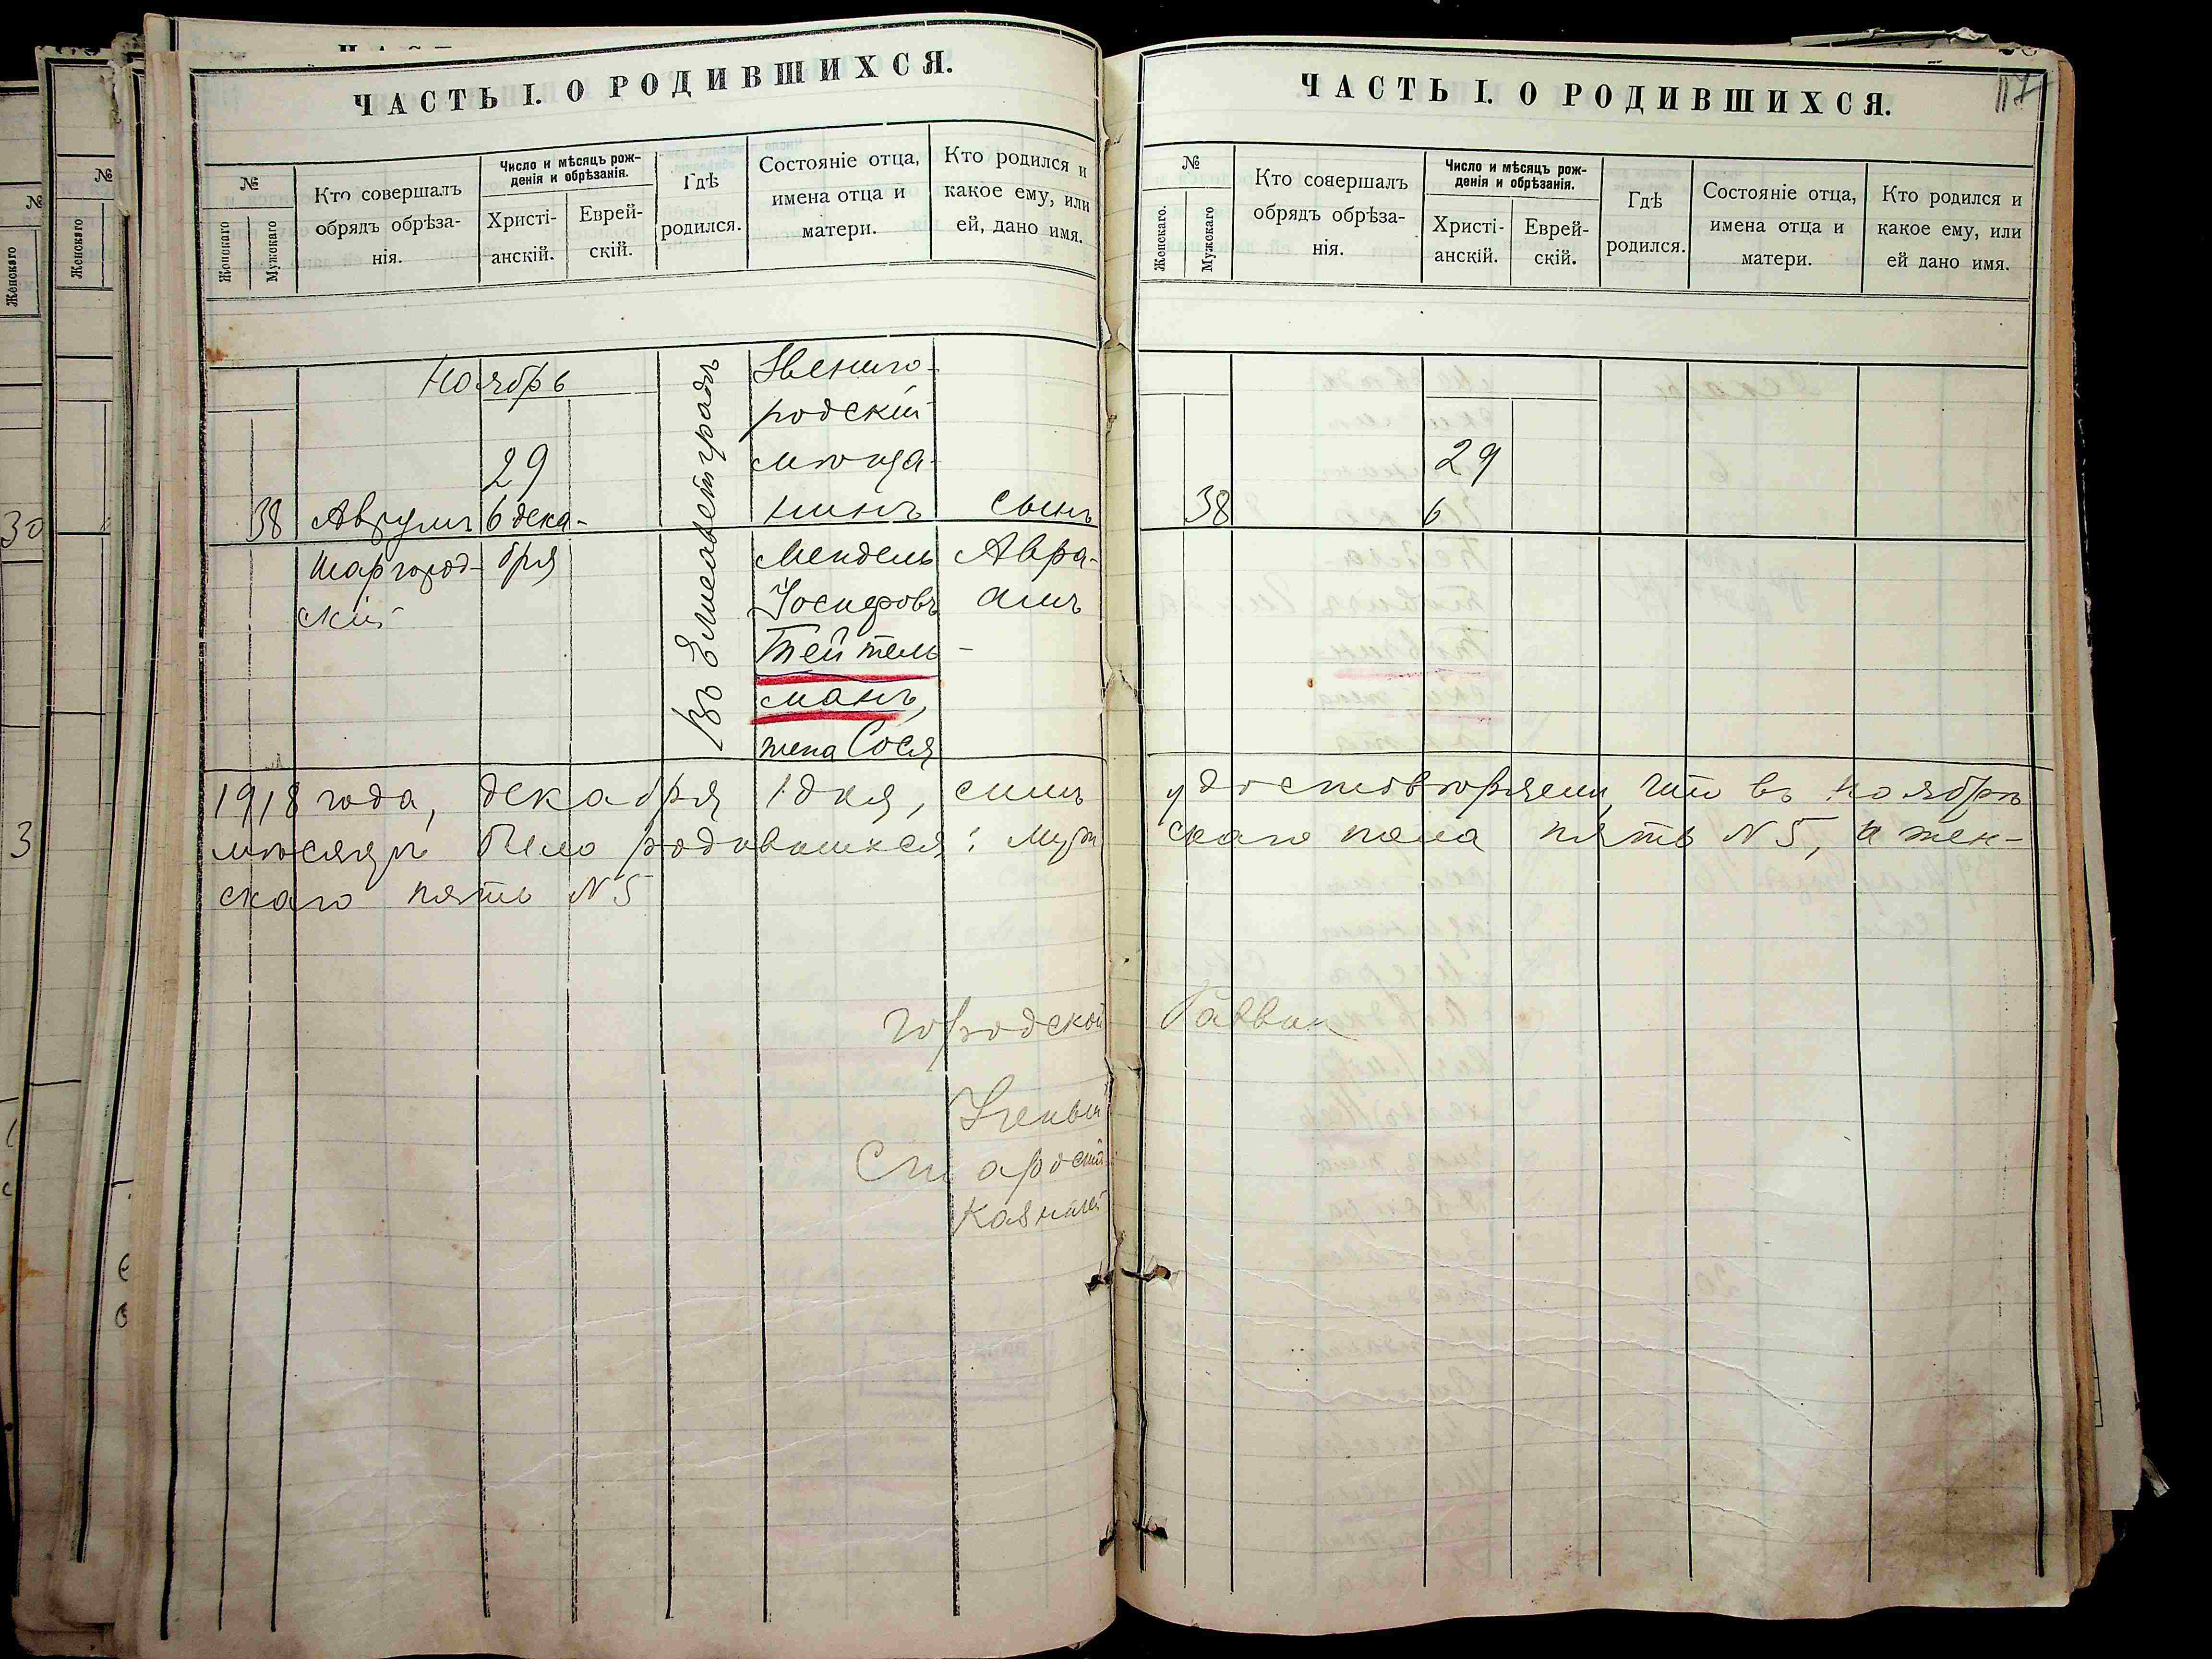 ЧАСТЬ I. О РОДИВШИХСЯ.
№
Женскаго
Мужскаго
Кто совершалъ
обрядъ обрѣза-
нія.
Число и мѣсяцъ рож-
денія и обрѣзанія.
Христі-
анскій.
Еврей-
скій.
Гдѣ
родился.
Состояніе отца,
имена отца и
матери.
Кто родился и
какое ему, или
ей, дано имя.
Ноябрь
38
Аврумъ
Шаргород-
скій
29
6 дека-
бря
Въ Елисаветградѣ
Звениго-
родскій
мѣща-
нинъ
Мендель
Іосифовъ
Тейтель-
манъ,
жена Сося
сынъ
Авра-
амъ
1918 года, декабря 1 дня, симъ
мѣсяцѣ было родившихся: муж
скаго пять №5
городской
Ученый
Староста
Казначей
ЧАСТЬ I. О РОДИВШИХСЯ.
117
№
Женскаго.
Мужскаго
Кто совершалъ
обрядъ обрѣза-
нія.
Число и мѣсяцъ рож-
денія и обрѣзанія.
Христі-
анскій.
Еврей-
скій.
Гдѣ
родился.
Состояніе отца,
имена отца и
матери.
Кто родился и
какое ему, или
ей дано имя.
38
29
6
удостовѣряемъ, что въ ноябрѣ
скаго пола пять №5, а жен-
Раввин